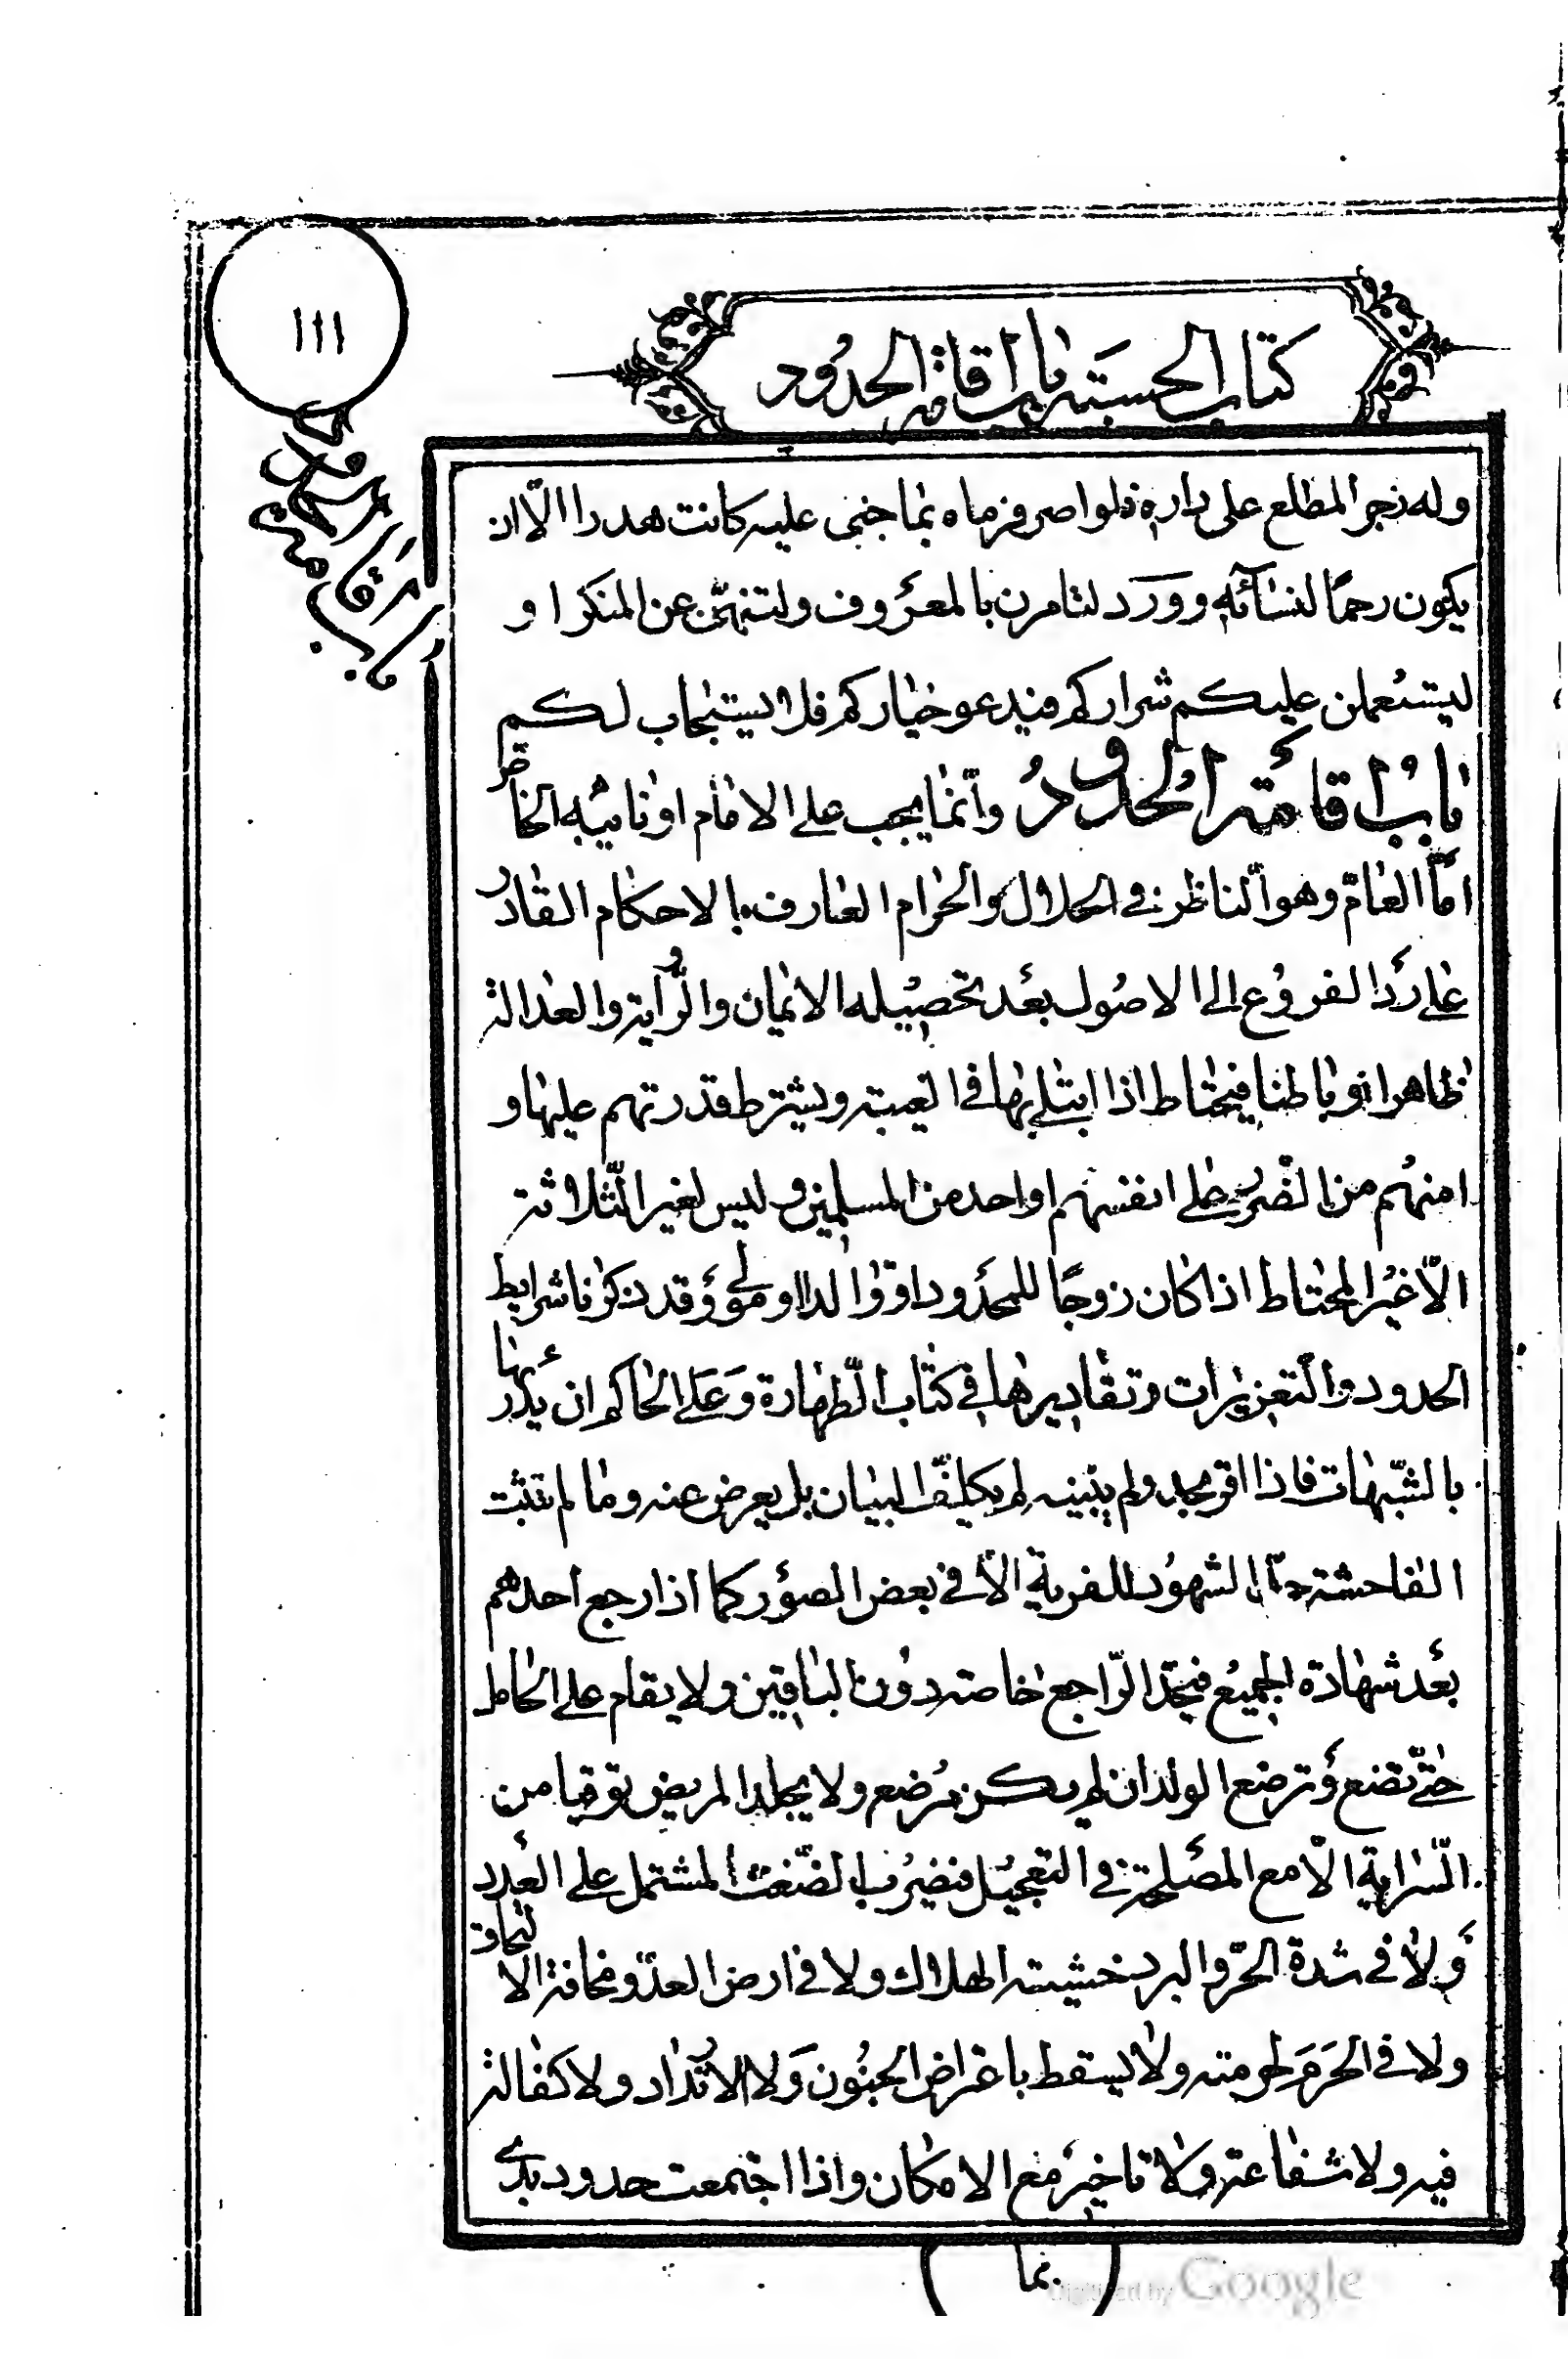 ١١١
كتاب الحسبة باب اقامة الحدود
باب اقامة الحدود
وله زجر المطلع على داره فلو اصر فرماه بما جنى عليه كانت هدرا الّا ان
يكون رحمًا لنسائه وورد لتامرن بالمعروف ولتنهنّ عن المنكر او
ليستعملن عليكم شراركم فيدعو خياركم فلا يستجاب لكم
باب اقامة الحدود وانّما يجب على الامام او نائبه الخاص
امّا العامّ وهو الناظر في الحلال والحرام العارف بالاحكام القادر
على ردّ الفروع الى الاصول بعد تحصيله الايمان والدّراية والعدالة
ظاهرا وباطنا فيحتاط اذا ابتلى بها في الغيبة ويشترط قدرتهم عليها و
امنهم من الضّرر على انفسهم او احد من المسلمين وليس لغير الثّلاثة
الّا غير المحتاط اذا كان زوجًا للمحدود او والدا او مولى وقد ذكرنا شرايط
الحدود والتعزيرات وتقاديرها في كتاب الطّهارة وعلى الحاكم ان يدرئها
بالشّبهات فاذا اقر بحد ولم يبيّنه لم يكلّف البيان بل يعرض عنه وما لم تثبت
الفاحشة حدّ الشهود للفرية الّا في بعض الصور كما اذا رجع احدهم
بعد شهادة الجميع فيحدّ الرّاجع خاصة دون الباقين ولا يقام على الحامل
حتّى تضع وترضع الولد ان لم يكن مرضع ولا يجلد المريض توقيا من
السّراية الّا مع المصلحة في التعجيل فيضرب بالضّغث المشتمل على العدد
ولا في شدة الحرّ والبرد خشية الهلاك ولا في ارض العدّو مخافة الالتحاق
ولا في الحرم لحرمته ولا يسقط باعتراض الجنون ولا الارتداد ولا كفالة
فيه ولا شفاعة ولا تاخير مع الامكان واذا اجتمعت حدود بدئ
بما
Digitized by Google